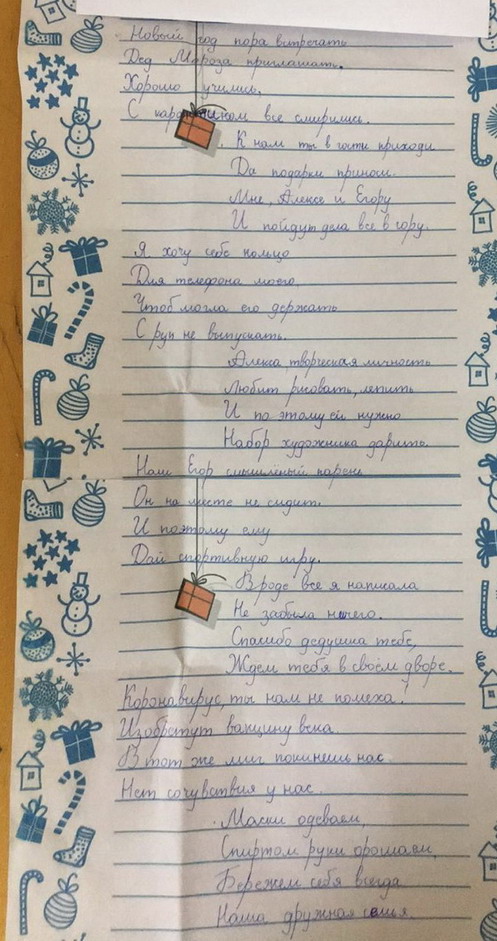 Новый год пора встречать
Дед Мороза приглашать.
Хорошо учились,
С карантином все смирились.
К нам ты в гости приходи
Да подарки приноси.
Мне, Алексе и Егору
И пойдут дела все в гору.
Я хочу себе кольцо
Для телефона моего,
Чтоб могла его держать
С рук не выпускать.
Алекса творческая личность
Любит рисовать, лепить
И по этому ей нужно
Набор художника дарить.
Наш Егор смышлёный парень
Он на месте не сидит.
И поэтому ему
Дай спортивную игру.
Вроде все я написала
Не забыла ничего.
Спасибо дедушка тебе,
Ждем тебя в своем дворе.
Коронавирус, ты нам не помеха!
Изобретут вакцину века.
В тот же миг покинешь нас
Нет сочувствия у нас.
Маски одеваем,
Спиртом руки орошаем,
Бережем себя всегда
Наша дружная семья.